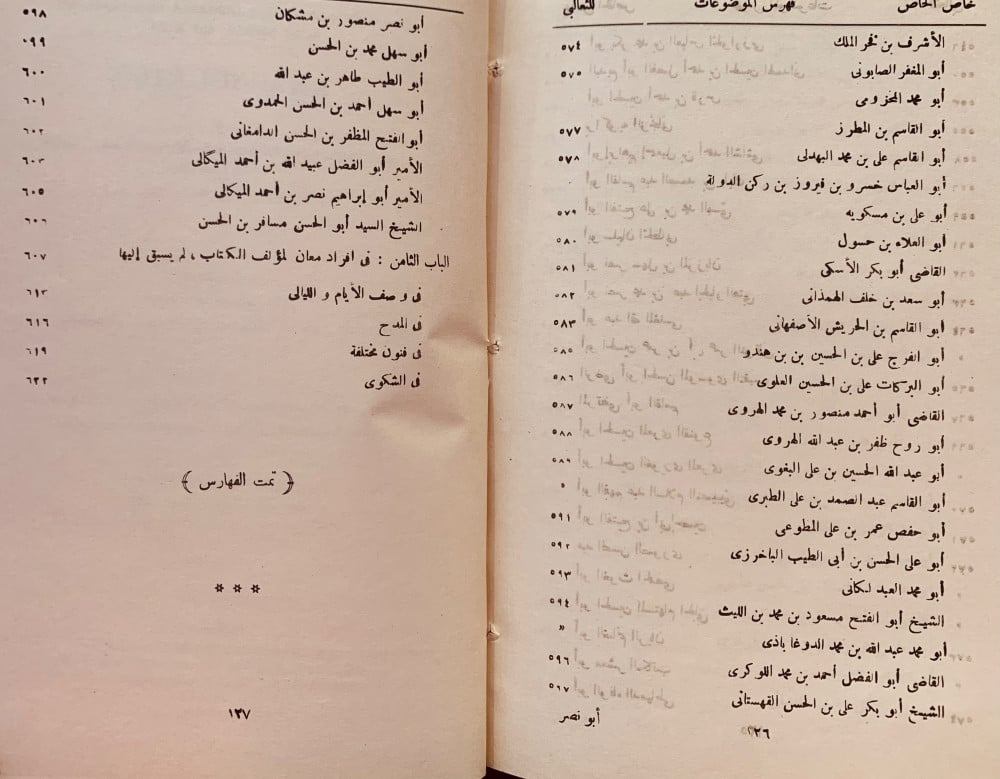 خاص الخاص فهرس الموضوعات للثعالبي
الأشرف بن فخر الملك ٥٧٤
أبو المغفر الصابونى ٥٧٥
أبو محمد المخزومى »
أبو القاسم بن المطرز ٥٧٧
أبو القاسم على بن محمد البهدلى ٥٧٨
أبو العباس خسرو بن فيروز بن ركن الدولة »
أبو على بن مسكويه ٥٧٩
أبو العلاء بن حسول ٥٨٠
القاضى أبو بكر الأسكى ٥٨١
أبو سعد بن خلف الهمذانى ٥٨٢
أبو القاسم بن الحريش الأصفهانى ٥٨٣
أبو الفرج على بن الحسين بن بن هندو ٥٨٥
أبو البركات على بن الحسين العلوى ٥٨٦
القاضى أبو أحمد منصور بن محمد الهروى ٥٨٧
أبو روح ظفر بن عبد الله الهروى ٥٨٨
أبو عبد الله الحسين بن على البغوى ٥٨٩
أبو القاسم عبد الصمد بن على الطبرى »
أبو حفص عمر بن على المطوعى ٥٩١
أبو على الحسن بن أبى الطيب الباخرزى ٥٩٢
أبو محمد العبد لكانى ٥٩٣
الشيخ أبو الفتح مسعود بن محمد بن الليث ٥٩٤
أبو محمد عبد الله بن محمد الدوغاباذى »
القاضى أبو الفضل أحمد بن محمد اللوكرى ٥٩٦
الشيخ أبو بكر على بن الحسن القهستانى ٥٦٧
أبو نصر
٢٦
أبو نصر منصور بن مشكان ٥٩٨
أبو سهل محمد بن الحسن ٥٩٩
أبو الطيب طاهر بن عبد الله ٦٠٠
أبو سهل أحمد بن الحسن الحمدوى ٦٠١
أبو الفتح المظفر بن الحسن الدامغانى ٦٠٢
الأمير أبو الفضل عبيد الله بن أحمد الميكالى ٦٠٣
الأمير أبو إبراهيم نصر بن أحمد الميكالى ٦٠٥
الشيخ السيد أبو الحسن مسافر بن الحسن ٦٠٦
الباب الثامن : فى افراد معان لمؤلف الكتاب ، لم يسبق إليها ٦٠٧
فى وصف الأيام و الليالى ٦١٣
فى المدح ٦١٦
فى فنون مختلفة ٦١٩
فى الشكوى ٦٢٢
﴿ تمت الفهارس ﴾
* * *
١٢٧